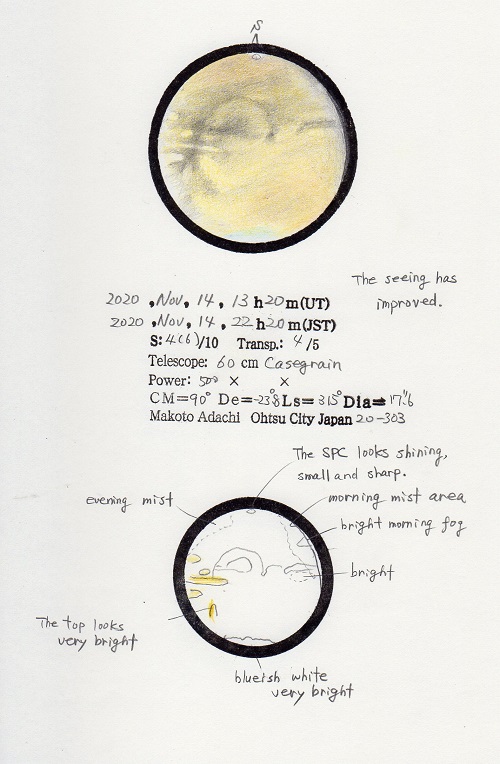 S
The seeing has
improved.
2020 , Nov, 14 , 13 h 20 m (UT)
2020 , Nov, 14 , 22 h 20 m (JST)
S: 4(6)/10 Transp.: 4/5
Telescope: 60 cm Casegrain
Power: 500 × ×
CM=90° De=-23.°8 Ls=315° Dia=17."6
Makoto Adachi Ohtsu City Japan 20-303
The SPC looks shining,
small and sharp.
evening mist
morning mist area
bright morning fog
bright
The top looks
very bright
blueish white
very bright